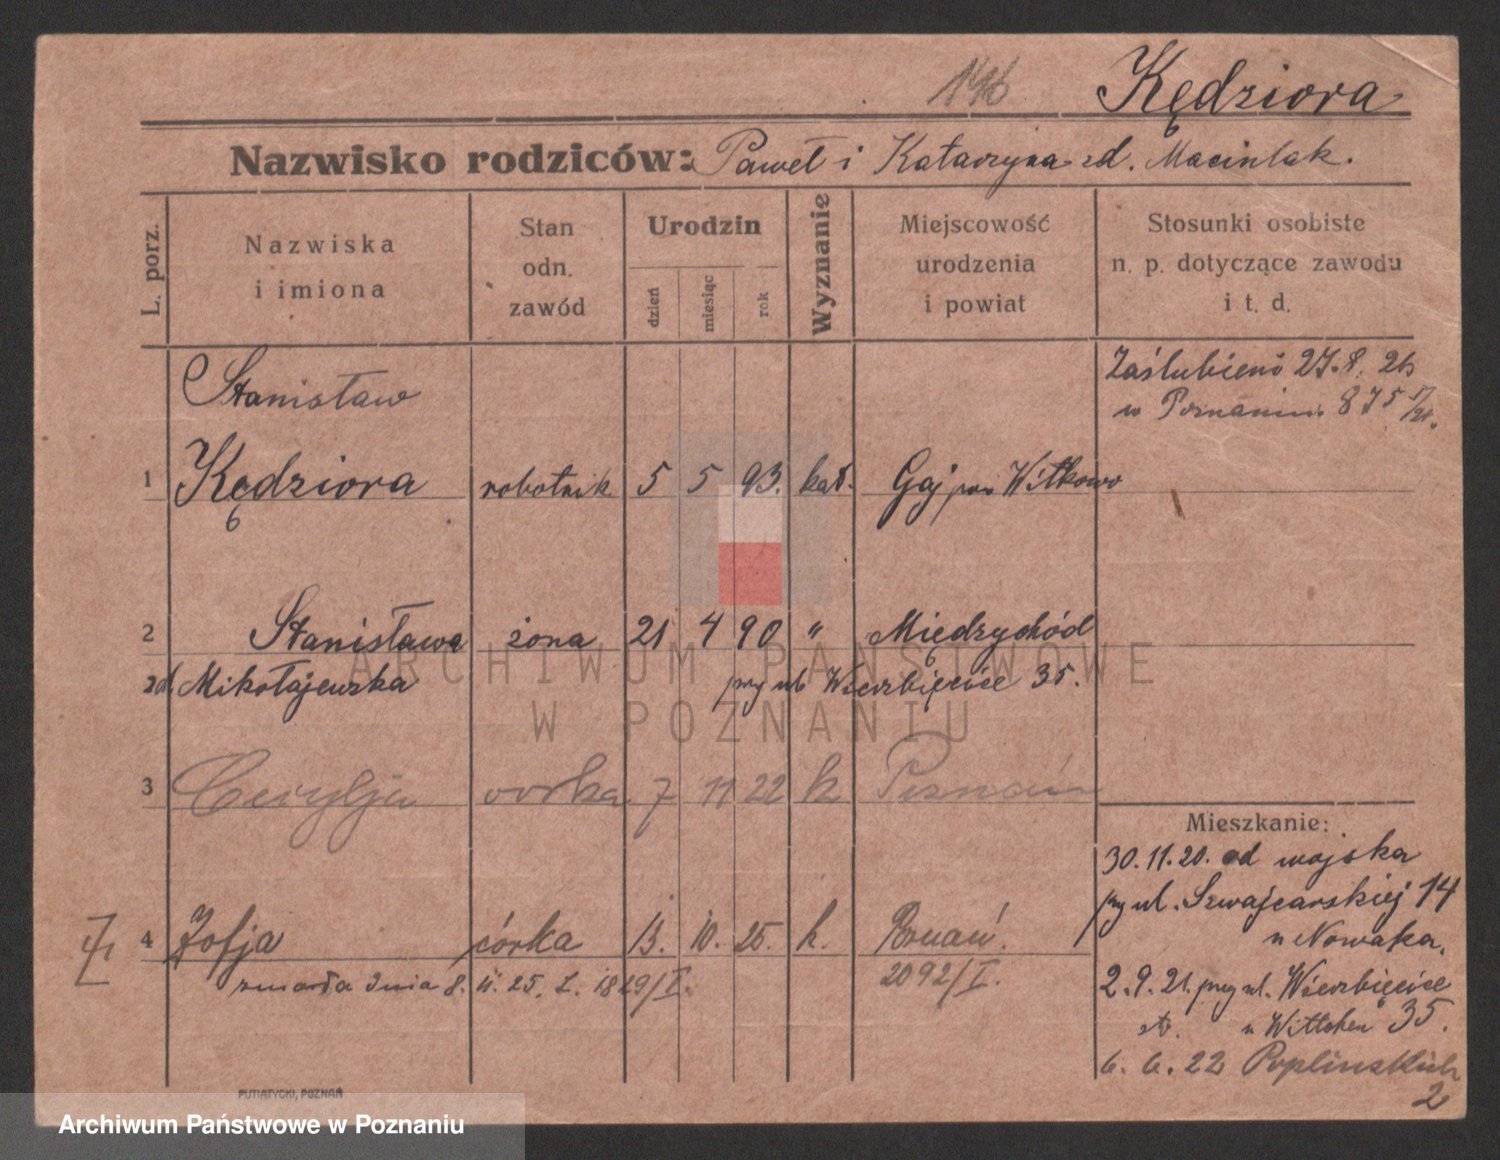 146 Kędziora
Nazwisko rodziców: Paweł i Katarzyna zd. Maciniak.
L. porz.
Nazwiska i imiona
Stan odn. zawód
Urodzin
dzień miesiąc rok
Wyznanie
Miejscowość urodzenia i powiat
Stosunki osobiste n. p. dotyczące zawodu i t. d.
Stanisław
Zaślubieni 27.8.
w Poznaniu 875
1 Kędziora robotnik 5 5 93. kat. Gaj pow Witkowo
2 Stanisława żona 21 4 90 " Międzychód
zd. Mikołajewska przy ul Wierzbięcice 35.
3 Cecylja córka 7 11 22 k Poznań
4 Zofja córka 13. 10. 25. k. Poznań.
zmarła dnia 8. 11. 25. L. 1829/I. 2092/I.
Mieszkanie:
30.11.20. od wojska
przy ul. Szwajcarskiej 14
u Nowaka.
2.9.21. przy ul. Wierzbięcice
35.
6. 6. 22 Poplińskich
2
PUTIATYCKI, POZNAŃ
ARCHIWUM PAŃSTWOWE
W POZNANIU
Archiwum Państwowe w Poznaniu